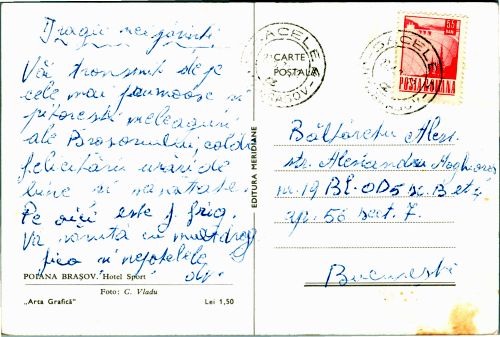 Dragii mei părinți
Vă transmit de pe
cele mai frumoase și
pitorești meleaguri
ale Brașovului, calde
felicitări urări de
bine și sănătate.
Pe aici este f. frig.
Va sărută cu mult drag
fica și nepoțelele
POIANA BRAȘOV. Hotel Sport
Foto: C. Vladu
„Arta Grafică" Lei 1,50
EDITURA MERIDIANE
CARTE
POSTALA
SĂCELE
BRAȘOV
SĂCELE
55
BAN
POSTA ROMANA
Băltărețu Alex.
str. Alexandru Moghioroș
nr. 19 Bl. OD5 sc. B et 4
ap. 56 sect. 7
București